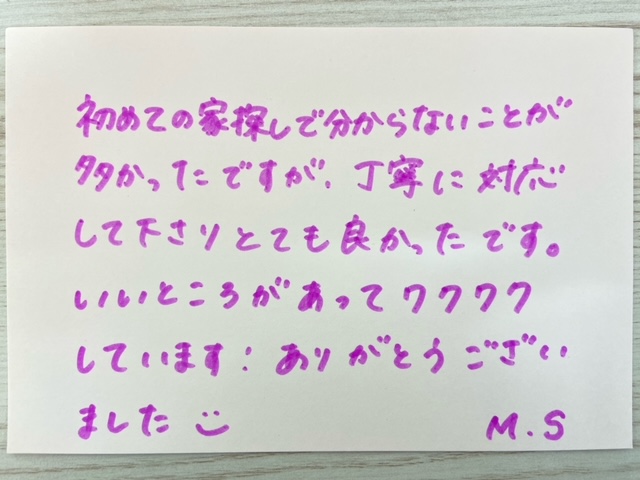 初めての家探しで分からないことが
多かったですが、丁寧に対応
して下さりとても良かったです。
いいところがあってワクワク
しています！ありがとうござい
ました
M.S